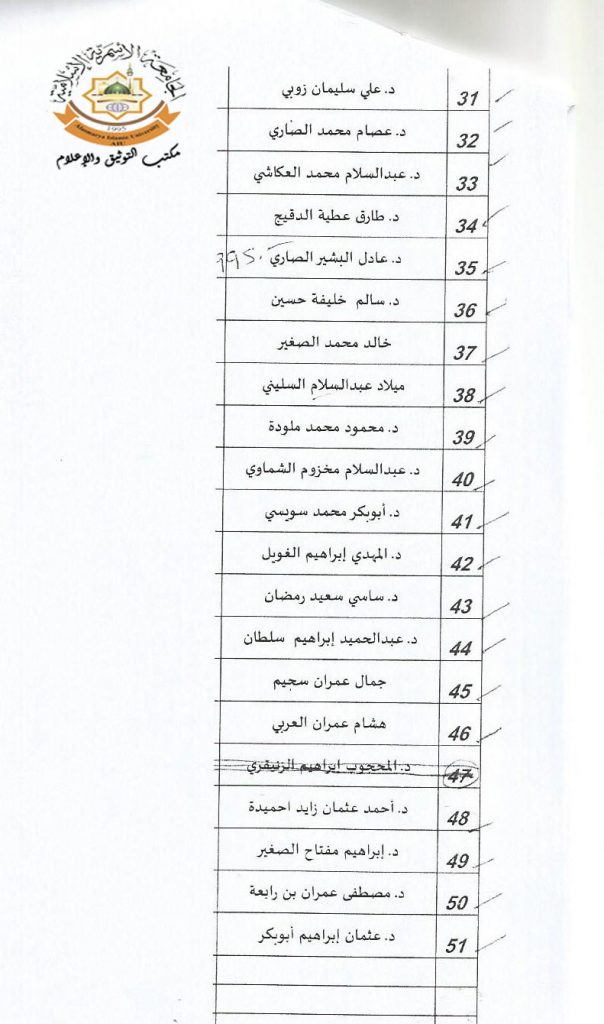 الجامعة الأسمرية الإسلامية
1995
Alasmarya Islamic University
AIU
مكتب التوثيق والإعلام
31 د. علي سليمان زوبي
32 د. عصام محمد الصاري
33 د. عبدالسلام محمد العكاشي
34 د. طارق عطية الدقيج
35 د. عادل البشير الصاري
36 د. سالم خليفة حسين
37 خالد محمد الصغير
38 ميلاد عبدالسلام السليني
39 د. محمود محمد ملودة
40 د. عبدالسلام مخزوم الشماوي
41 د. أبوبكر محمد سويسي
42 د. المهدي إبراهيم الغويل
43 د. سامي سعيد رمضان
44 د. عبدالحميد إبراهيم سلطان
45 جمال عمران سحيم
46 هشام عمران العربي
47 د. المحجوب إبراهيم الزنيقري
48 د. أحمد عثمان زايد احميدة
49 د. إبراهيم مفتاح الصغير
50 د. مصطفى عمران بن رابعة
51 د. عثمان إبراهيم أبوبكر